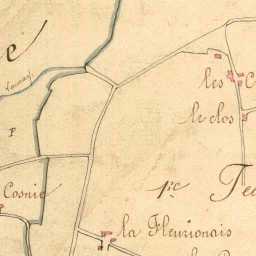 e
les C
le clos
F
Cosnie
1re
Te
la Fleurionais